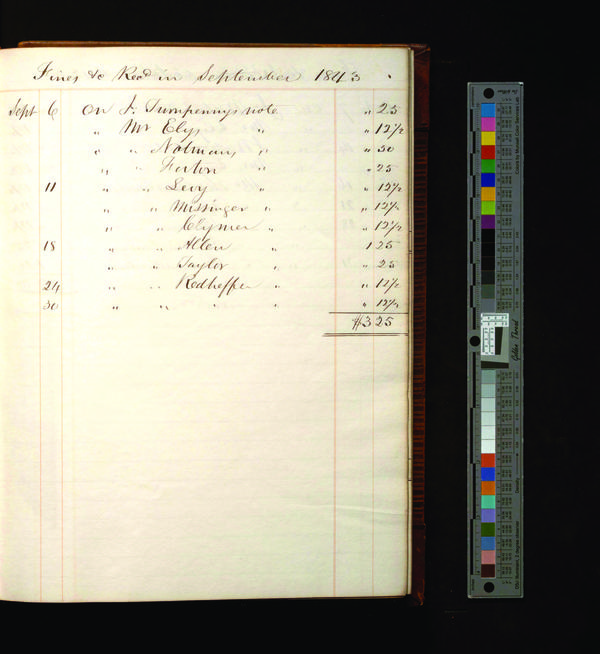 Fines &c Recd in September 1843
Sept 6 On J. Turnpenny's note " 25
" Mr Elys " " 12 1/2
" " Notmans " " 50
" " Horton " " 25
11 " " Levy " " 12 1/2
" " Missinger " " 12 1/2
" " Clymer " " 12 1/2
18 " " Allen " 1 25
" " Taylor " " 25
24 " " Redheffer " " 12 1/2
30 " " " " " 12 1/2
$3 25